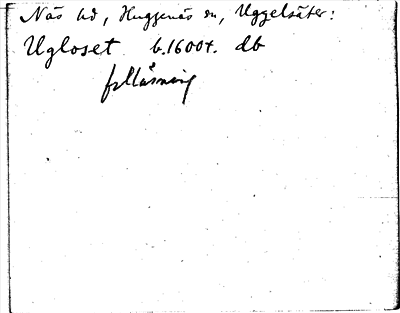 Näs hd, Huggenäs sn, Uggelsäter:
Ugloset b.1600t. db
felläsning